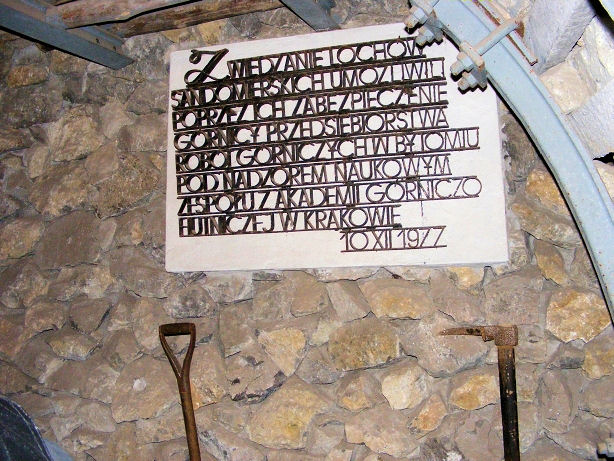 ZWIEDZANIE LOCHÓW
SANDOMIERSKICH UMOŻLIWILI
POPRZEZ ICH ZABEZPIECZENIE
GÓRNICY PRZEDSIĘBIORSTWA
ROBÓT GÓRNICZYCH W BYTOMIU
POD NADZOREM NAUKOWYM
ZESPOŁU Z AKADEMII GÓRNICZO
HUTNICZEJ W KRAKOWIE
10 XII 1977